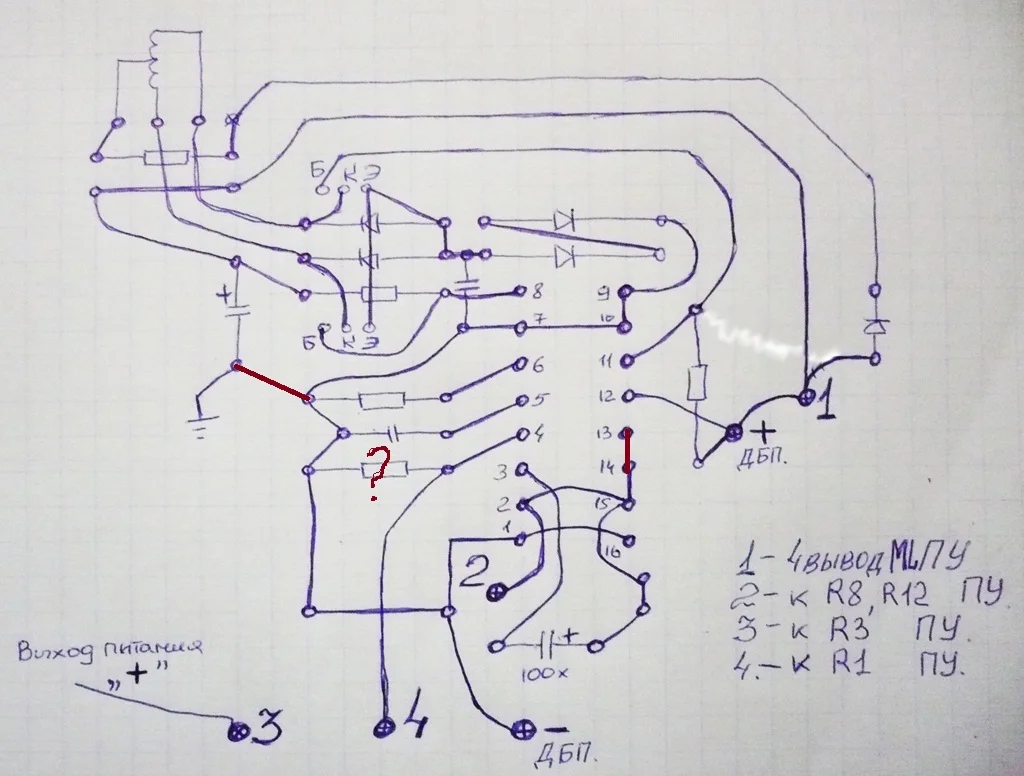 Б К Э
+
8 9
7 10
Б К Э
6 11
5 12
1
4 13
+
ДБП.
?
3 14
2 15
1 16
2
1 - 4 вывод МЦ ПУ
2 - к R8, R12 ПУ
3 - к R3 ПУ.
4. - к R1 ПУ.
+
100х
Выход питания
„+”
3
4
-
ДБП.